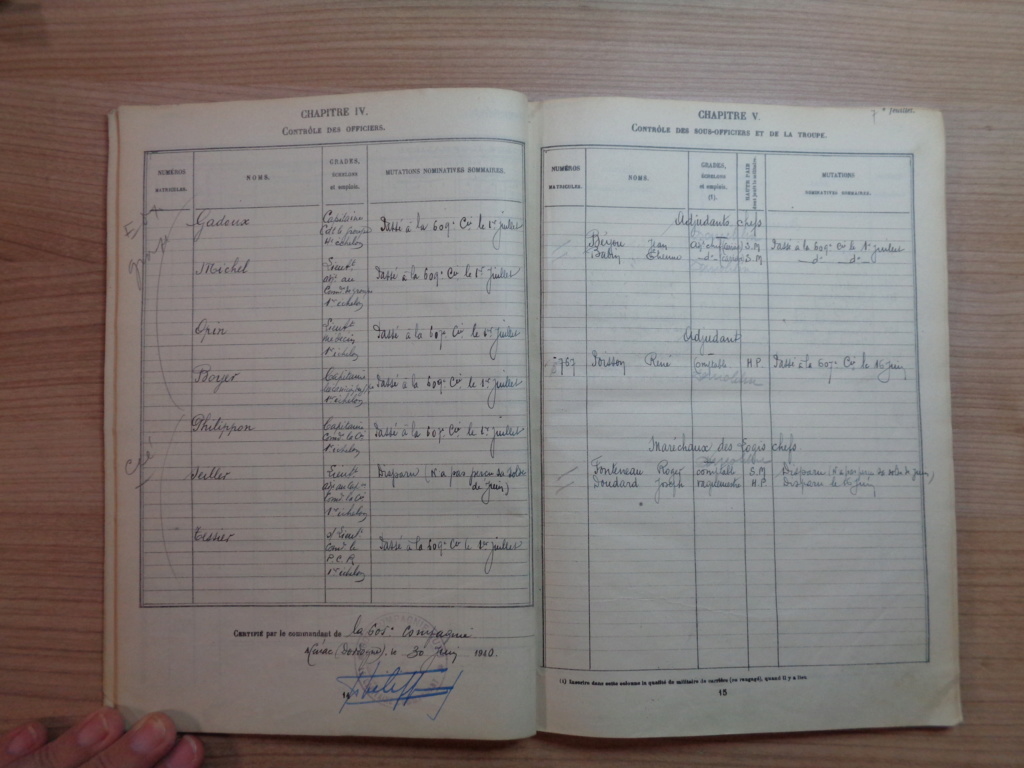 CHAPITRE IV.
CONTRÔLE DES OFFICIERS.
NUMÉROS MATRICULES.
NOMS.
GRADES, ÉCHELONS et emplois.
MUTATIONS NOMINATIVES SOMMAIRES.
Gadoux
Capitaine
1er échelon
Passé à la 609e Cie le 1er juillet
Michel
Lieut
1er échelon
Passé à la 609e Cie le 1er juillet
Opin
Lieut
médecin
1er échelon
Passé à la 609e Cie le 1er juillet
Boyer
Capitaine
1er échelon
Passé à la 609e Cie le 1er juillet
Cie
Philippon
Capitaine
Comdt la Cie
1er échelon
Passé à la 609e Cie le 1er juillet
Juller
Lieut
Comdt la Cie
1er échelon
Disparu (N'a pas perçu sa solde
de Juin)
Tisner
s/Lieut
Comdt la
P.C.R.
1er échelon
Passé à la 609e Cie le 1er juillet
CERTIFIÉ par le commandant de la 605e Compagnie
(Dordogne), le 30 Juin 1940.
CHAPITRE V.
7e feuillet.
CONTRÔLE DES SOUS-OFFICIERS ET DE LA TROUPE.
NUMÉROS MATRICULES.
NOMS.
GRADES, ÉCHELONS et emplois. (1).
MUTATIONS NOMINATIVES SOMMAIRES.
Adjudants chefs
Jean S.M Passé à la 609e Cie le 1er juillet
Etienne -d- S.M -d- -d-
Adjudant
767 Poisson René comptable H.P. Passé à la 609e Cie le 16 juin
Maréchaux des Logis chefs
Fontereau Roger comptable S.M Disparu (N'a pas perçu sa solde de Juin)
Doudard Joseph H.P. Disparu le 16 Juin
(1) Inscrire dans cette colonne la qualité de militaire de carrière (ou rengagé), quand il y a lieu.
15